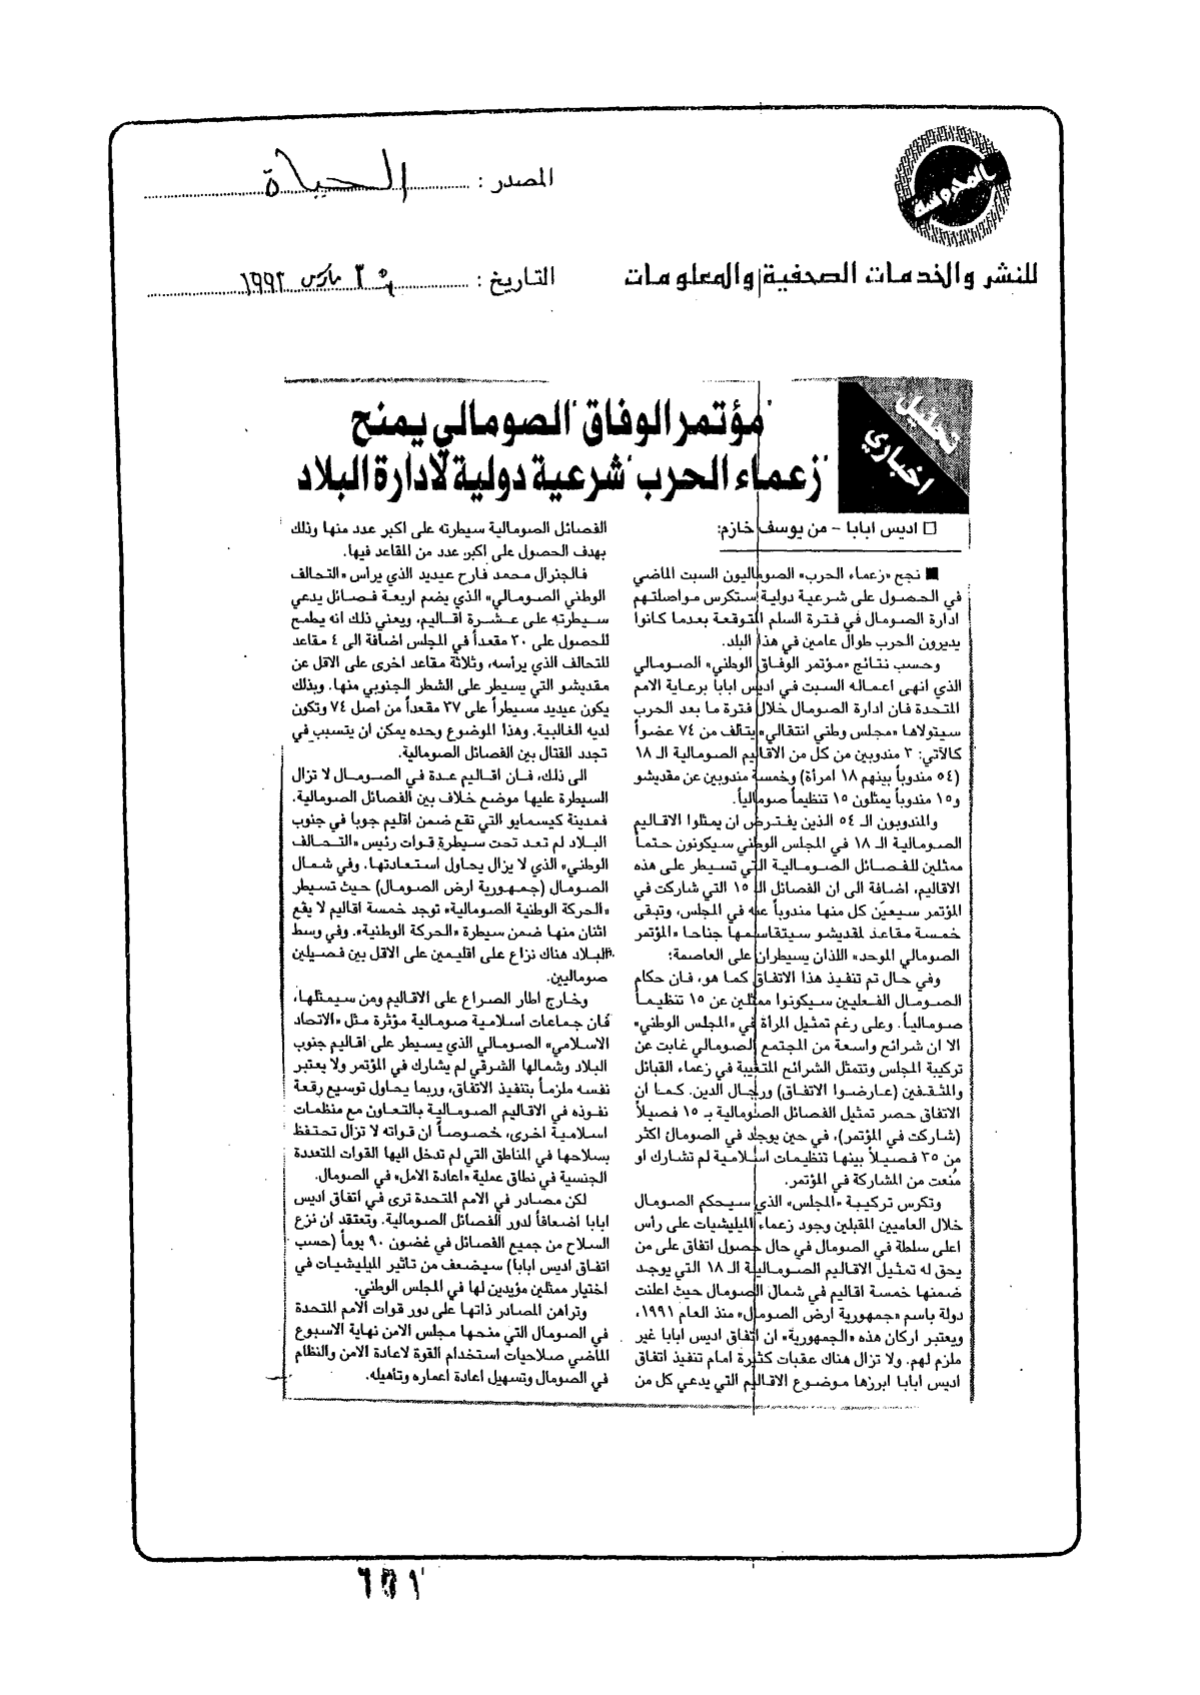 المحروسة
للنشر والخدمات الصحفية والمعلومات
المصدر : الحياة
التاريخ : ٣٠ مارس ١٩٩٣
تحليل
اخباري
"مؤتمر الوفاق" الصومالي يمنح
"زعماء الحرب" شرعية دولية لادارة البلاد
□ اديس ابابا – من يوسف خازم:
■ نجح «زعماء الحرب» الصوماليون السبت الماضي
في الحصول على شرعية دولية ستكرس مواصلتهم
ادارة الصومال في فترة السلم المتوقعة بعدما كانوا
يديرون الحرب طوال عامين في هذا البلد.
وحسب نتائج «مؤتمر الوفاق الوطني» الصومالي
الذي انهى اعماله السبت في اديس ابابا برعاية الامم
المتحدة فان ادارة الصومال خلال فترة ما بعد الحرب
سيتولاها «مجلس وطني انتقالي» يتألف من ٧٤ عضواً
كالآتي: ٣ مندوبين من كل من الاقاليم الصومالية الـ ١٨
(٥٤ مندوباً بينهم ١٨ امرأة) وخمسة مندوبين عن مقديشو
و١٥ مندوباً يمثلون ١٥ تنظيماً صومالياً.
والمندوبون الـ ٥٤ الذين يفترض ان يمثلوا الاقاليم
الصومالية الـ ١٨ في المجلس الوطني سيكونون حتماً
ممثلين للفصائل الصومالية التي تسيطر على هذه
الاقاليم، اضافة الى ان الفصائل الـ ١٥ التي شاركت في
المؤتمر سيعيّن كل منها مندوباً عنه في المجلس، وتبقى
خمسة مقاعد لمقديشو سيتقاسمها جناحا «المؤتمر
الصومالي الموحد» اللذان يسيطران على العاصمة:
وفي حال تم تنفيذ هذا الاتفاق كما هو، فان حكام
الصومال الفعليين سيكونوا ممثلين عن ١٥ تنظيماً
صومالياً. وعلى رغم تمثيل المرأة في «المجلس الوطني»
الا ان شرائح واسعة من المجتمع الصومالي غابت عن
تركيبة المجلس وتتمثل الشرائح المتغيبة في زعماء القبائل
والمثقفين (عارضوا الاتفاق) ورجال الدين. كما ان
الاتفاق حصر تمثيل الفصائل الصومالية بـ ١٥ فصيلاً
(شاركت في المؤتمر)، في حين يوجد في الصومال اكثر
من ٣٥ فصيلاً بينها تنظيمات اسلامية لم تشارك او
مُنعت من المشاركة في المؤتمر.
وتكرس تركيبة «المجلس» الذي سيحكم الصومال
خلال العاميين المقبلين وجود زعماء الميليشيات على رأس
اعلى سلطة في الصومال في حال حصول اتفاق على من
يحق له تمثيل الاقاليم الصومالية الـ ١٨ التي يوجد
ضمنها خمسة اقاليم في شمال الصومال حيث اعلنت
دولة باسم «جمهورية ارض الصومال» منذ العام ١٩٩١،
ويعتبر اركان هذه «الجمهورية» ان اتفاق اديس ابابا غير
ملزم لهم. ولا تزال هناك عقبات كثيرة امام تنفيذ اتفاق
اديس ابابا ابرزها موضوع الاقاليم التي يدعي كل من
الفصائل الصومالية سيطرته على اكبر عدد منها وذلك
بهدف الحصول على اكبر عدد من المقاعد فيها.
فالجنرال محمد فارح عيديد الذي يرأس «التحالف
الوطني الصومالي» الذي يضم اربعة فصائل يدعي
سيطرته على عشرة اقاليم، ويعني ذلك انه يطمح
للحصول على ٣٠ مقعداً في المجلس اضافة الى ٤ مقاعد
للتحالف الذي يرأسه، وثلاثة مقاعد اخرى على الاقل عن
مقديشو التي يسيطر على الشطر الجنوبي منها. وبذلك
يكون عيديد مسيطراً على ٣٧ مقعداً من اصل ٧٤ وتكون
لديه الغالبية. وهذا الموضوع وحده يمكن ان يتسبب في
تجدد القتال بين الفصائل الصومالية.
الى ذلك، فان اقاليم عدة في الصومال لا تزال
السيطرة عليها موضع خلاف بين الفصائل الصومالية.
فمدينة كيسمايو التي تقع ضمن اقليم جوبا في جنوب
البلاد لم تعد تحت سيطرة قوات رئيس «التحالف
الوطني» الذي لا يزال يحاول استعادتها. وفي شمال
الصومال (جمهورية ارض الصومال) حيث تسيطر
«الحركة الوطنية الصومالية» توجد خمسة اقاليم لا يقع
اثنان منها ضمن سيطرة «الحركة الوطنية». وفي وسط
البلاد هناك نزاع على اقليمين على الاقل بين فصيلين
صوماليين.
وخارج اطار الصراع على الاقاليم ومن سيمثلها،
فان جماعات اسلامية صومالية مؤثرة مثل «الاتحاد
الاسلامي» الصومالي الذي يسيطر على اقاليم جنوب
البلاد وشمالها الشرقي لم يشارك في المؤتمر ولا يعتبر
نفسه ملزماً بتنفيذ الاتفاق، وربما يحاول توسيع رقعة
نفوذه في الاقاليم الصومالية بالتعاون مع منظمات
اسلامية اخرى، خصوصاً ان قواته لا تزال تحتفظ
بسلاحها في المناطق التي لم تدخل اليها القوات المتعددة
الجنسية في نطاق عملية «اعادة الامل» في الصومال.
لكن مصادر في الامم المتحدة ترى في اتفاق اديس
ابابا اضعافاً لدور الفصائل الصومالية. وتعتقد ان نزع
السلاح من جميع الفصائل في غضون ٩٠ يوماً (حسب
اتفاق اديس ابابا) سيضعف من تاثير الميليشيات في
اختيار ممثلين مؤيدين لها في المجلس الوطني.
وتراهن المصادر ذاتها على دور قوات الامم المتحدة
في الصومال التي منحها مجلس الامن نهاية الاسبوع
الماضي صلاحيات استخدام القوة لاعادة الامن والنظام
في الصومال وتسهيل اعادة اعماره وتأهيله.